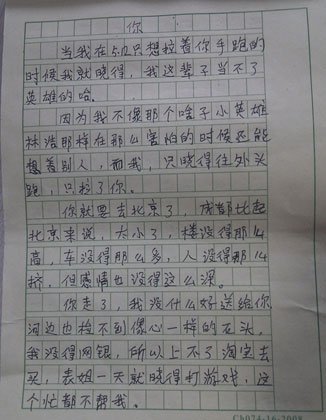 你
当我在512只想拉着你手跑的
时候我就晓得，我这辈子当不了
英雄的哈.
因为我不像那个啥子小英雄
林浩那样在那么害怕的时候还能
想着别人，而我，只晓得往外头
跑，只拉了你。
你就要去北京了，成都比起
北京来说，太小了，楼没得那么
高，车没得那么多，人没得那么
挤，但感情也没得这么深。
你走了，我没什么好送给你
河边也捡不到像心一样的石头，
我没得网银，所以上不了淘宝去
买，表姐一天就晓得打游戏，这
个忙都不帮我。
Ch074-16-2008